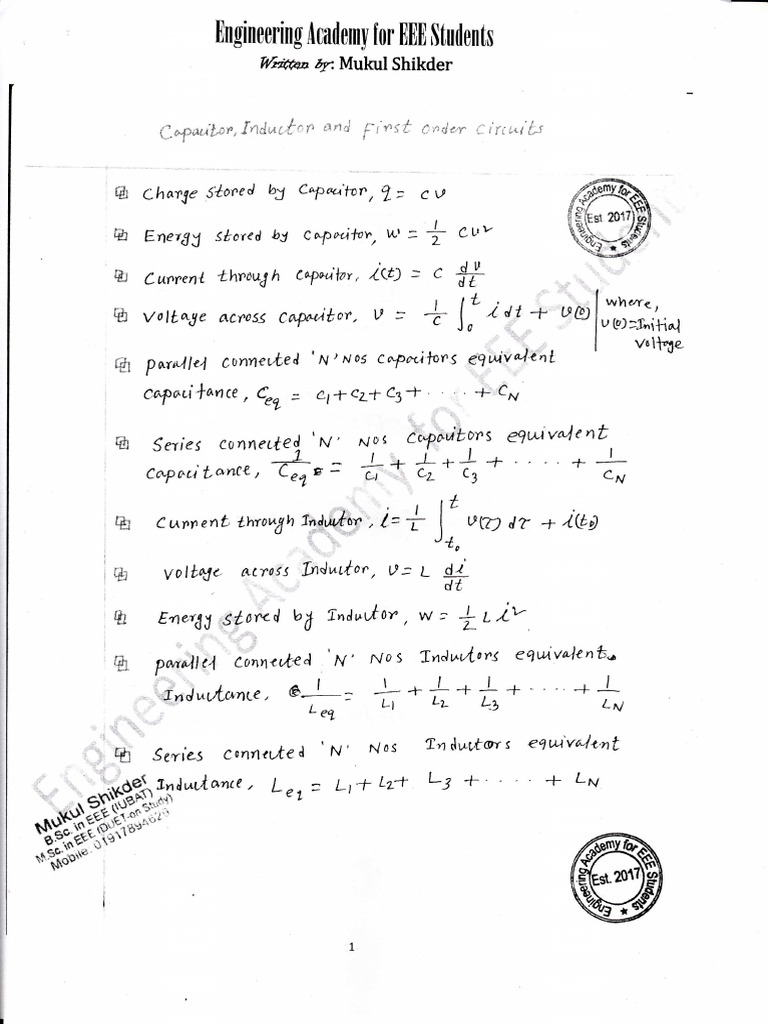 Engineering Academy for EEE Students
Written by: Mukul Shikder
Capacitor, Inductor and First Order Circuits
Charge stored by Capacitor, q = cv
Energy stored by Capacitor, w = 1/2 cv²
Current through Capacitor, i(t) = c dv/dt
Voltage across Capacitor, v = 1/c ∫₀ᵗ i dt + v(0) | where, v(0) = Initial voltage
parallel connected 'N' Nos Capacitors equivalent
Capacitance, Ceq = c1 + c2 + c3 + ..... + CN
Series connected 'N' Nos Capacitors equivalent
Capacitance, 1/Ceq = 1/c1 + 1/c2 + 1/c3 + ..... + 1/CN
Current through Inductor, i = 1/L ∫t₀ᵗ v(τ) dτ + i(t₀)
Voltage across Inductor, v = L di/dt
Energy stored by Inductor, w = 1/2 L i²
parallel connected 'N' Nos Inductors equivalent
Inductance, 1/Leq = 1/L1 + 1/L2 + 1/L3 + ..... + 1/LN
Series connected 'N' Nos Inductors equivalent
Inductance, Leq = L1 + L2 + L3 + ..... + LN
Engineering Academy for EEE Students
Est 2017
Engineering Academy for EEE Students
Mukul Shikder
B.Sc. in EEE (IUBAT)
M.Sc. in EEE (DUET-on Study)
Mobile: 01917894620
Engineering Academy for EEE Students
Est. 2017
1